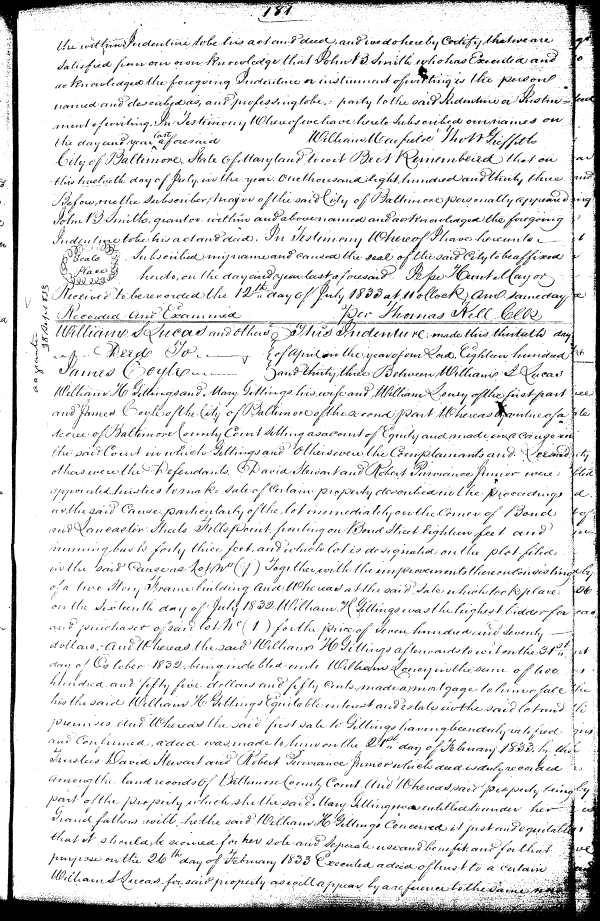 181
the within Indenture to be his act and deed, and we do hereby Certify that we are
satisfied from our own knowledge that John B Smith who has Executed and
acknowledged the foregoing Indenture or instrument of writing is the person
named and described as, and professing to be, party to the said Indenture or Instru=
ment of writing. In Testimony Whereof we have hereto Subscribed our names on
the day and year last aforesaid William Thos W Griffith
City of Baltimore, State of Maryland to wit Be it Remembered that on
this twelfth day of July, in the year One thousand eight hundred and thirty three
Before me the subscriber, Mayor of the said City of Baltimore personally appeared
John B Smith, grantor within and above named and acknowledged the foregoing
Indenture to be his act and deed. In Testimony Whereof I have hereunto
Seals Place
Subscribed my name and caused the seal of the said City to be affixed
hereto, on the day and year last aforesaid. Jesse Hunt Mayor
Received to be recorded the 12th day of July 1833 at 11 oClock, Am same day
Recorded And Examined per Thomas Kell Clk
William S Lucas and others This Indenture made this thirtieth day
Deed To of April in the year of our Lord Eighteen hundred
James Coyle and thirty three Between William S Lucas
William H Gittings and Mary Gittings his wife and William Loney of the first part
and James Coyle of the City of Baltimore of the second part Whereas by virtue of a
decree of Baltimore County Court sitting as a court of Equity and made in a cause in
the said Court in which Gittings and others were the Complainants and
others were the Defendants. David Stewart and Robert Purviance Junior were
appointed trustees to make sale of certain property described in the proceedings
in the said Cause, particularly of the lot immediately on the Corner of Bond
and Lancaster Streets Fells point, fronting on Bond Street Eighteen feet and
running back forty three feet, and which lot is designated on the plot filed
in the said Cause as Lot No (1) Together with the improvements thereon consisting
of a two Story Frame building And Whereas at the said Sale which took place
on the Sixteenth day of July 1832 William H Gittings was the highest bidder for
and purchaser of said lot No (1) for the price of Seven hundred and seventy
dollars; And Whereas the said William H Gittings afterwards to wit on the 31st
day of October 1832 being indebted unto William Loney in the sum of two
hundred and fifty five dollars and fifty Cents, made a mortgage to him of all
his the said William H Gittings Equitable interest and estate in the said lot and
premises And Whereas the said first sale to Gittings having been duly ratified
and confirmed, a deed was made to him on the 21st day of February 1833 by the
Trustees David Stewart and Robert Purviance Junior which deed is duly recorded
among the land records of Baltimore County Court. And Whereas, said property being
part of the property which she the said Mary Gittings was entitled to under her
Grand fathers will, he the said William H Gittings Conceived it just and equitable
that it should be secured for her sole and separate use and benefit and for that
purpose on the 26th day of February 1833 Executed a deed of trust to a certain
William S Lucas, for said property as will appear by a reference to the same